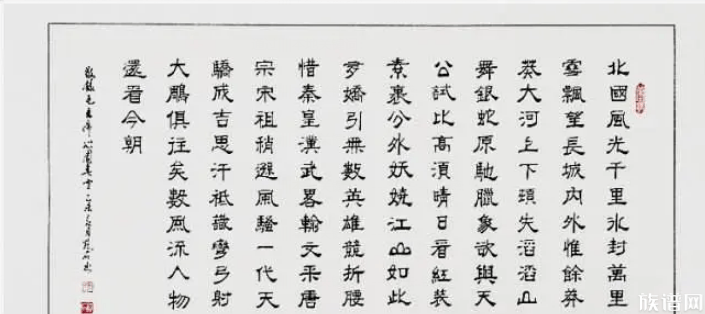 北國風光千里冰封萬里
雪飄望長城内外惟餘莽
莽大河上下頓失滔滔山
舞銀蛇原馳臘象欲與天
公試比高須晴日看紅裝
素裹分外妖嬈江山如此
多嬌引無數英雄競折腰
惜秦皇漢武畧輸文采唐
宗宋祖稍遜風騷一代天
驕成吉思汗祗識彎弓射
大鵰俱往矣數風流人物
還看今朝
敬錄毛主席沁園春雪
族谱网